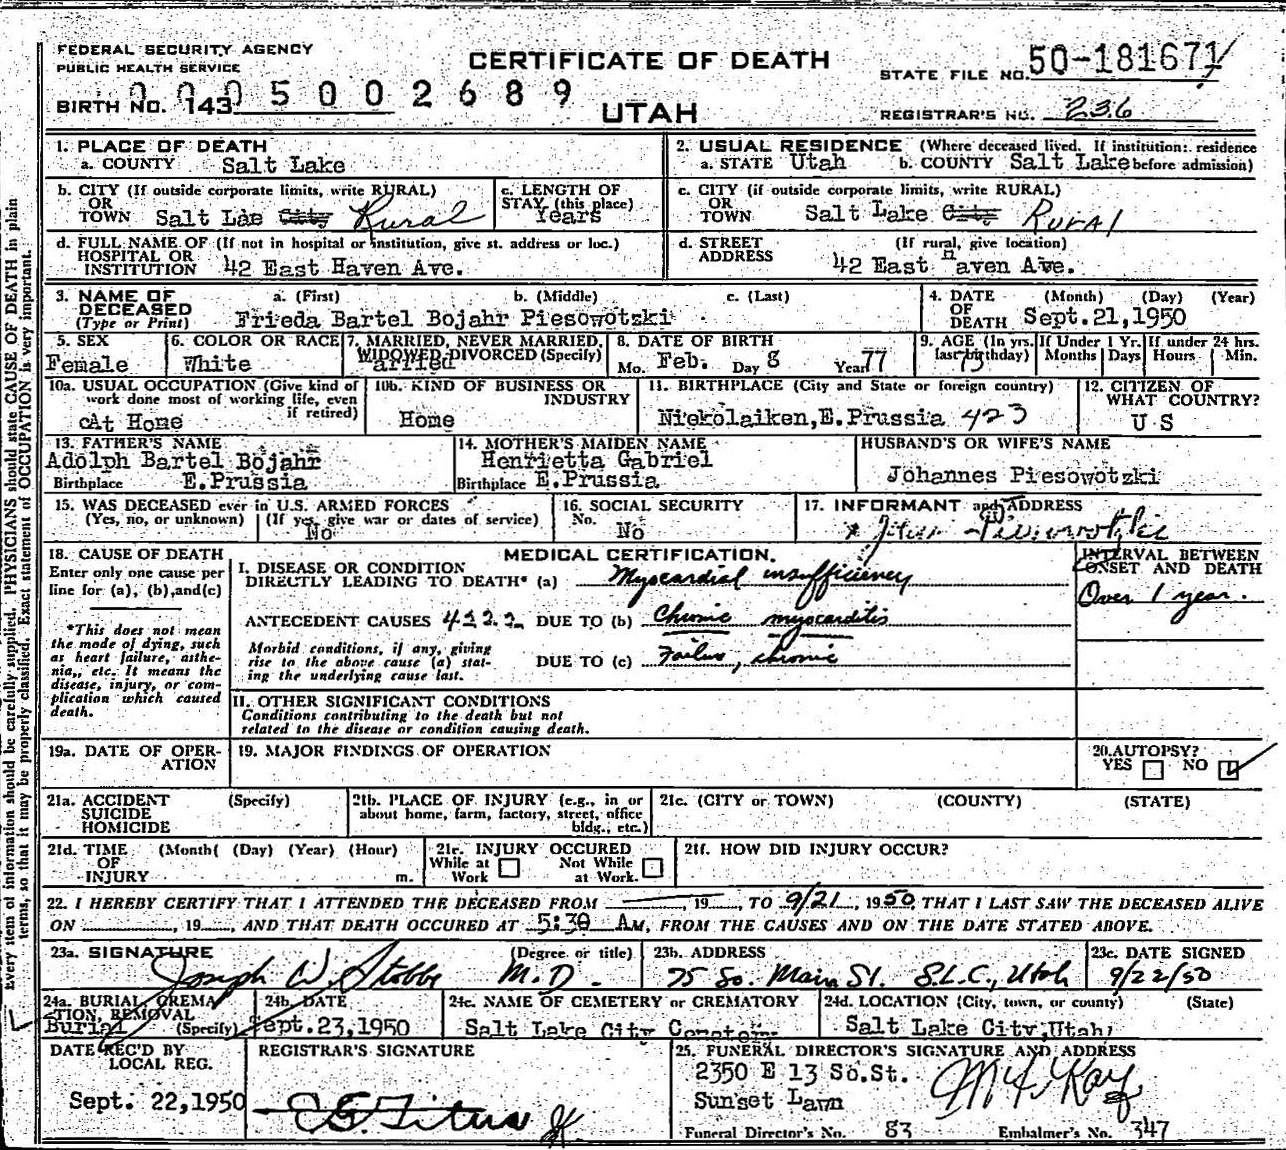 FEDERAL SECURITY AGENCY
PUBLIC HEALTH SERVICE
CERTIFICATE OF DEATH
UTAH
STATE FILE NO. 50-181671
BIRTH NO. 143 0005002689
REGISTRAR'S NO. 236
1. PLACE OF DEATH
a. COUNTY Salt Lake
2. USUAL RESIDENCE (Where deceased lived. If institution: residence before admission)
a. STATE Utah b. COUNTY Salt Lake
b. CITY (If outside corporate limits, write RURAL)
OR
TOWN Salt Lae City Rural
c. LENGTH OF
STAY (this place)
Years
c. CITY (if outside corporate limits, write RURAL)
OR
TOWN Salt Lake City Rural
d. FULL NAME OF (If not in hospital or institution, give st. address or loc.)
HOSPITAL OR
INSTITUTION 42 East Haven Ave.
d. STREET (If rural, give location)
ADDRESS 42 East Haven Ave.
3. NAME OF a. (First) b. (Middle) c. (Last)
DECEASED
(Type or Print) Frieda Bartel Bojahr Piesowotzki
4. DATE (Month) (Day) (Year)
OF
DEATH Sept.21,1950
5. SEX
Female
6. COLOR OR RACE
White
7. MARRIED, NEVER MARRIED,
WIDOWED, DIVORCED (Specify)
arried
8. DATE OF BIRTH
Mo. Feb. Day 8 Year 77
9. AGE (In yrs. last birthday) 73
If Under 1 Yr. Months Days
If under 24 hrs. Hours Min.
10a. USUAL OCCUPATION (Give kind of
work done most of working life, even
if retired)
At Home
10b. KIND OF BUSINESS OR
INDUSTRY
Home
11. BIRTHPLACE (City and State or foreign country)
Niekolaiken,E.Prussia 423
12. CITIZEN OF
WHAT COUNTRY?
U S
13. FATHER'S NAME
Adolph Bartel Bojahr
Birthplace E.Prussia
14. MOTHER'S MAIDEN NAME
Henrietta Gabriel
Birthplace E.Prussia
HUSBAND'S OR WIFE'S NAME
Johannes Piesowotzki
15. WAS DECEASED ever in U.S. ARMED FORCES
(Yes, no, or unknown) (If yes, give war or dates of service)
No
16. SOCIAL SECURITY
No. No
17. INFORMANT and ADDRESS
18. CAUSE OF DEATH
Enter only one cause per
line for (a), (b), and (c)
*This does not mean
the mode of dying, such
as heart failure, asthe-
nia,, etc. It means the
disease, injury, or com-
plication which caused
death.
MEDICAL CERTIFICATION.
I. DISEASE OR CONDITION
DIRECTLY LEADING TO DEATH* (a) Myocardial insufficiency
ANTECEDENT CAUSES 422.2 DUE TO (b) Chronic myocarditis
Morbid conditions, if any, giving
rise to the above cause (a) stat-
ing the underlying cause last.
DUE TO (c) Failure, chronic
INTERVAL BETWEEN
ONSET AND DEATH
Over 1 year.
II. OTHER SIGNIFICANT CONDITIONS
Conditions contributing to the death but not
related to the disease or condition causing death.
19a. DATE OF OPER-
ATION
19. MAJOR FINDINGS OF OPERATION
20. AUTOPSY?
YES NO
21a. ACCIDENT (Specify)
SUICIDE
HOMICIDE
21b. PLACE OF INJURY (e.g., in or
about home, farm, factory, street, office
bldg., etc.)
21c. (CITY or TOWN) (COUNTY) (STATE)
21d. TIME (Month( (Day) (Year) (Hour)
OF
INJURY m.
21e. INJURY OCCURED
While at Work Not While at Work.
21f. HOW DID INJURY OCCUR?
22. I HEREBY CERTIFY THAT I ATTENDED THE DECEASED FROM 19 , TO 9/21, 1950, THAT I LAST SAW THE DECEASED ALIVE
ON , 19 , AND THAT DEATH OCCURED AT 5:30 AM, FROM THE CAUSES AND ON THE DATE STATED ABOVE.
23a. SIGNATURE (Degree or title)
Joseph W. Stobbe M.D.
23b. ADDRESS
75 So. Main St. S.L.C., Utah
23c. DATE SIGNED
9/22/50
24a. BURIAL, CREMA-
TION, REMOVAL
Burial (Specify)
24b. DATE
Sept.23,1950
24c. NAME OF CEMETERY or CREMATORY
Salt Lake City Cemetery
24d. LOCATION (City, town, or county) (State)
Salt Lake City,Utah
DATE REC'D BY
LOCAL REG.
Sept. 22,1950
REGISTRAR'S SIGNATURE
25. FUNERAL DIRECTOR'S SIGNATURE AND ADDRESS
2350 E 13 So.St.
Sunset Lawn
Funeral Director's No. 83 Embalmer's No. 347
Every item of information should be carefully supplied. PHYSICIANS should state CAUSE OF DEATH in plain
terms, so that it may be properly classified. Exact statement of OCCUPATION is very important.